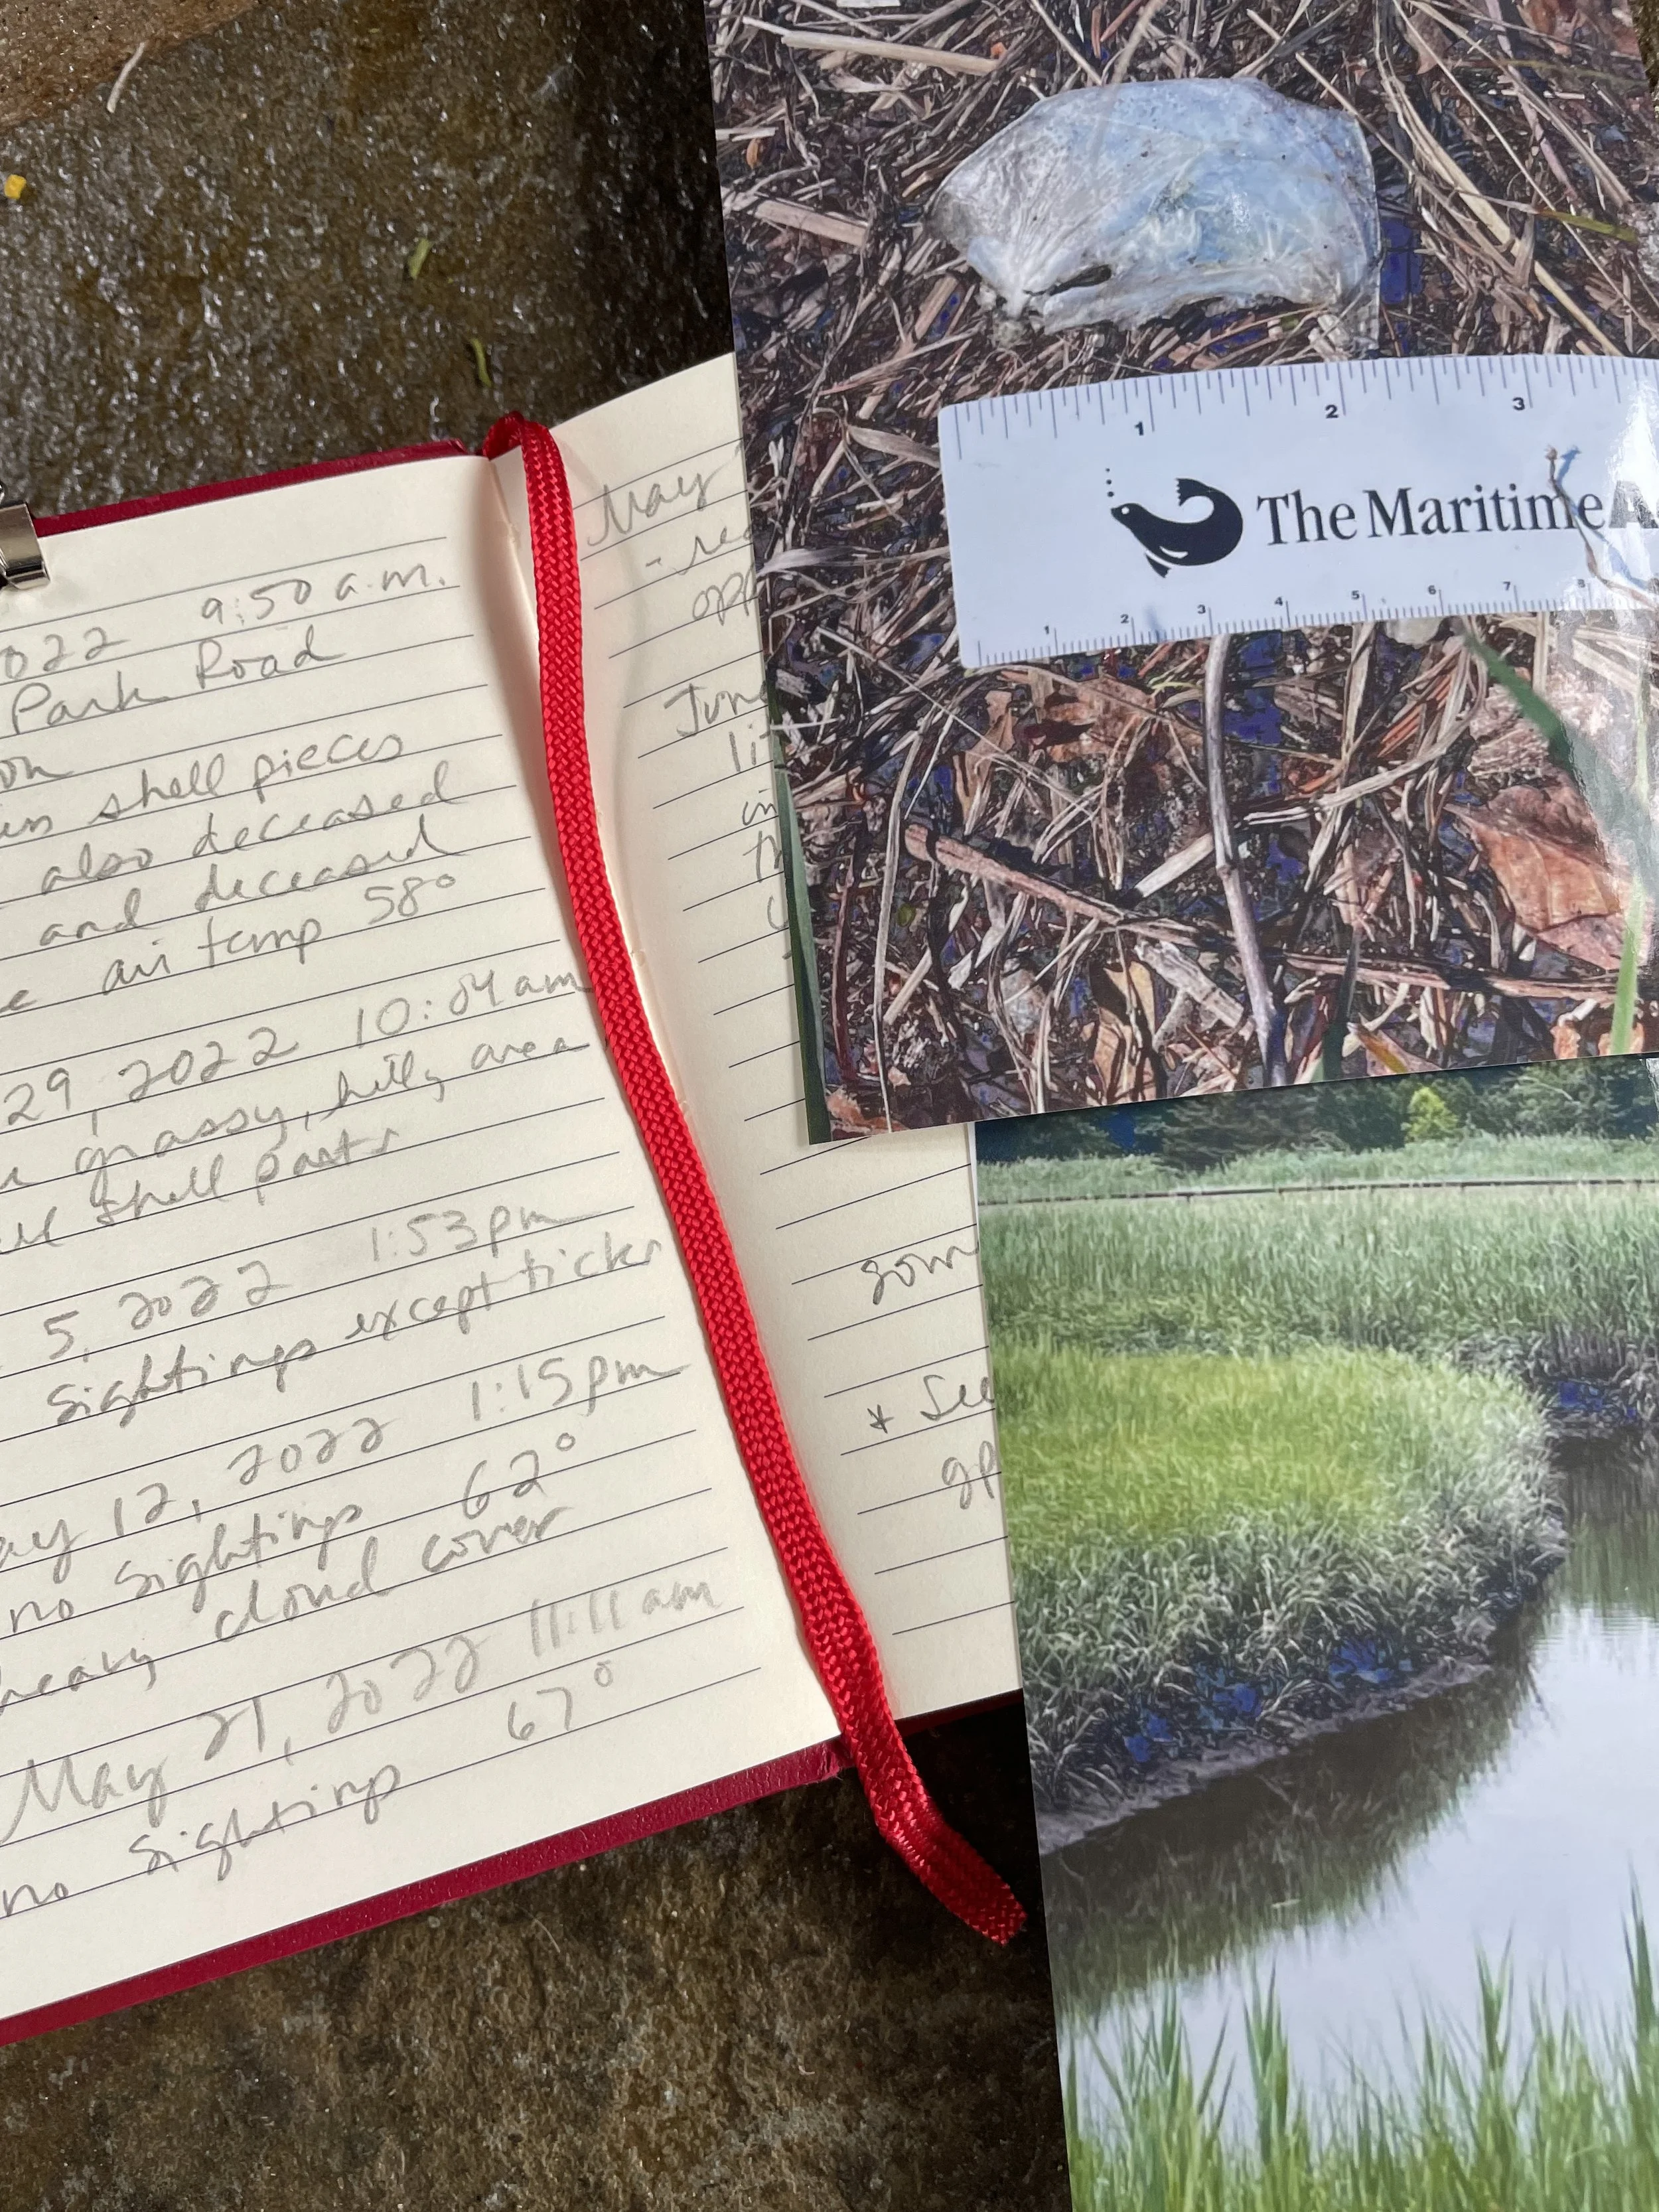 022 9:50 a.m.
Park Road
on
shell pieces
also deceased
and deceased
air temp 58°
29, 2022 10:04 am
grassy, hilly area
shell parts
5, 2022 1:53pm
sightings except ticks
ay 12, 2022 1:15pm
no sightings 62°
heavy cloud cover
May 21, 2022 11:11 am
no sightings 67°
May
- rea
opp
June
lit
in
th
som
* See
gp
1 2 3
The Maritime A
1 2 3 4 5 6 7 8